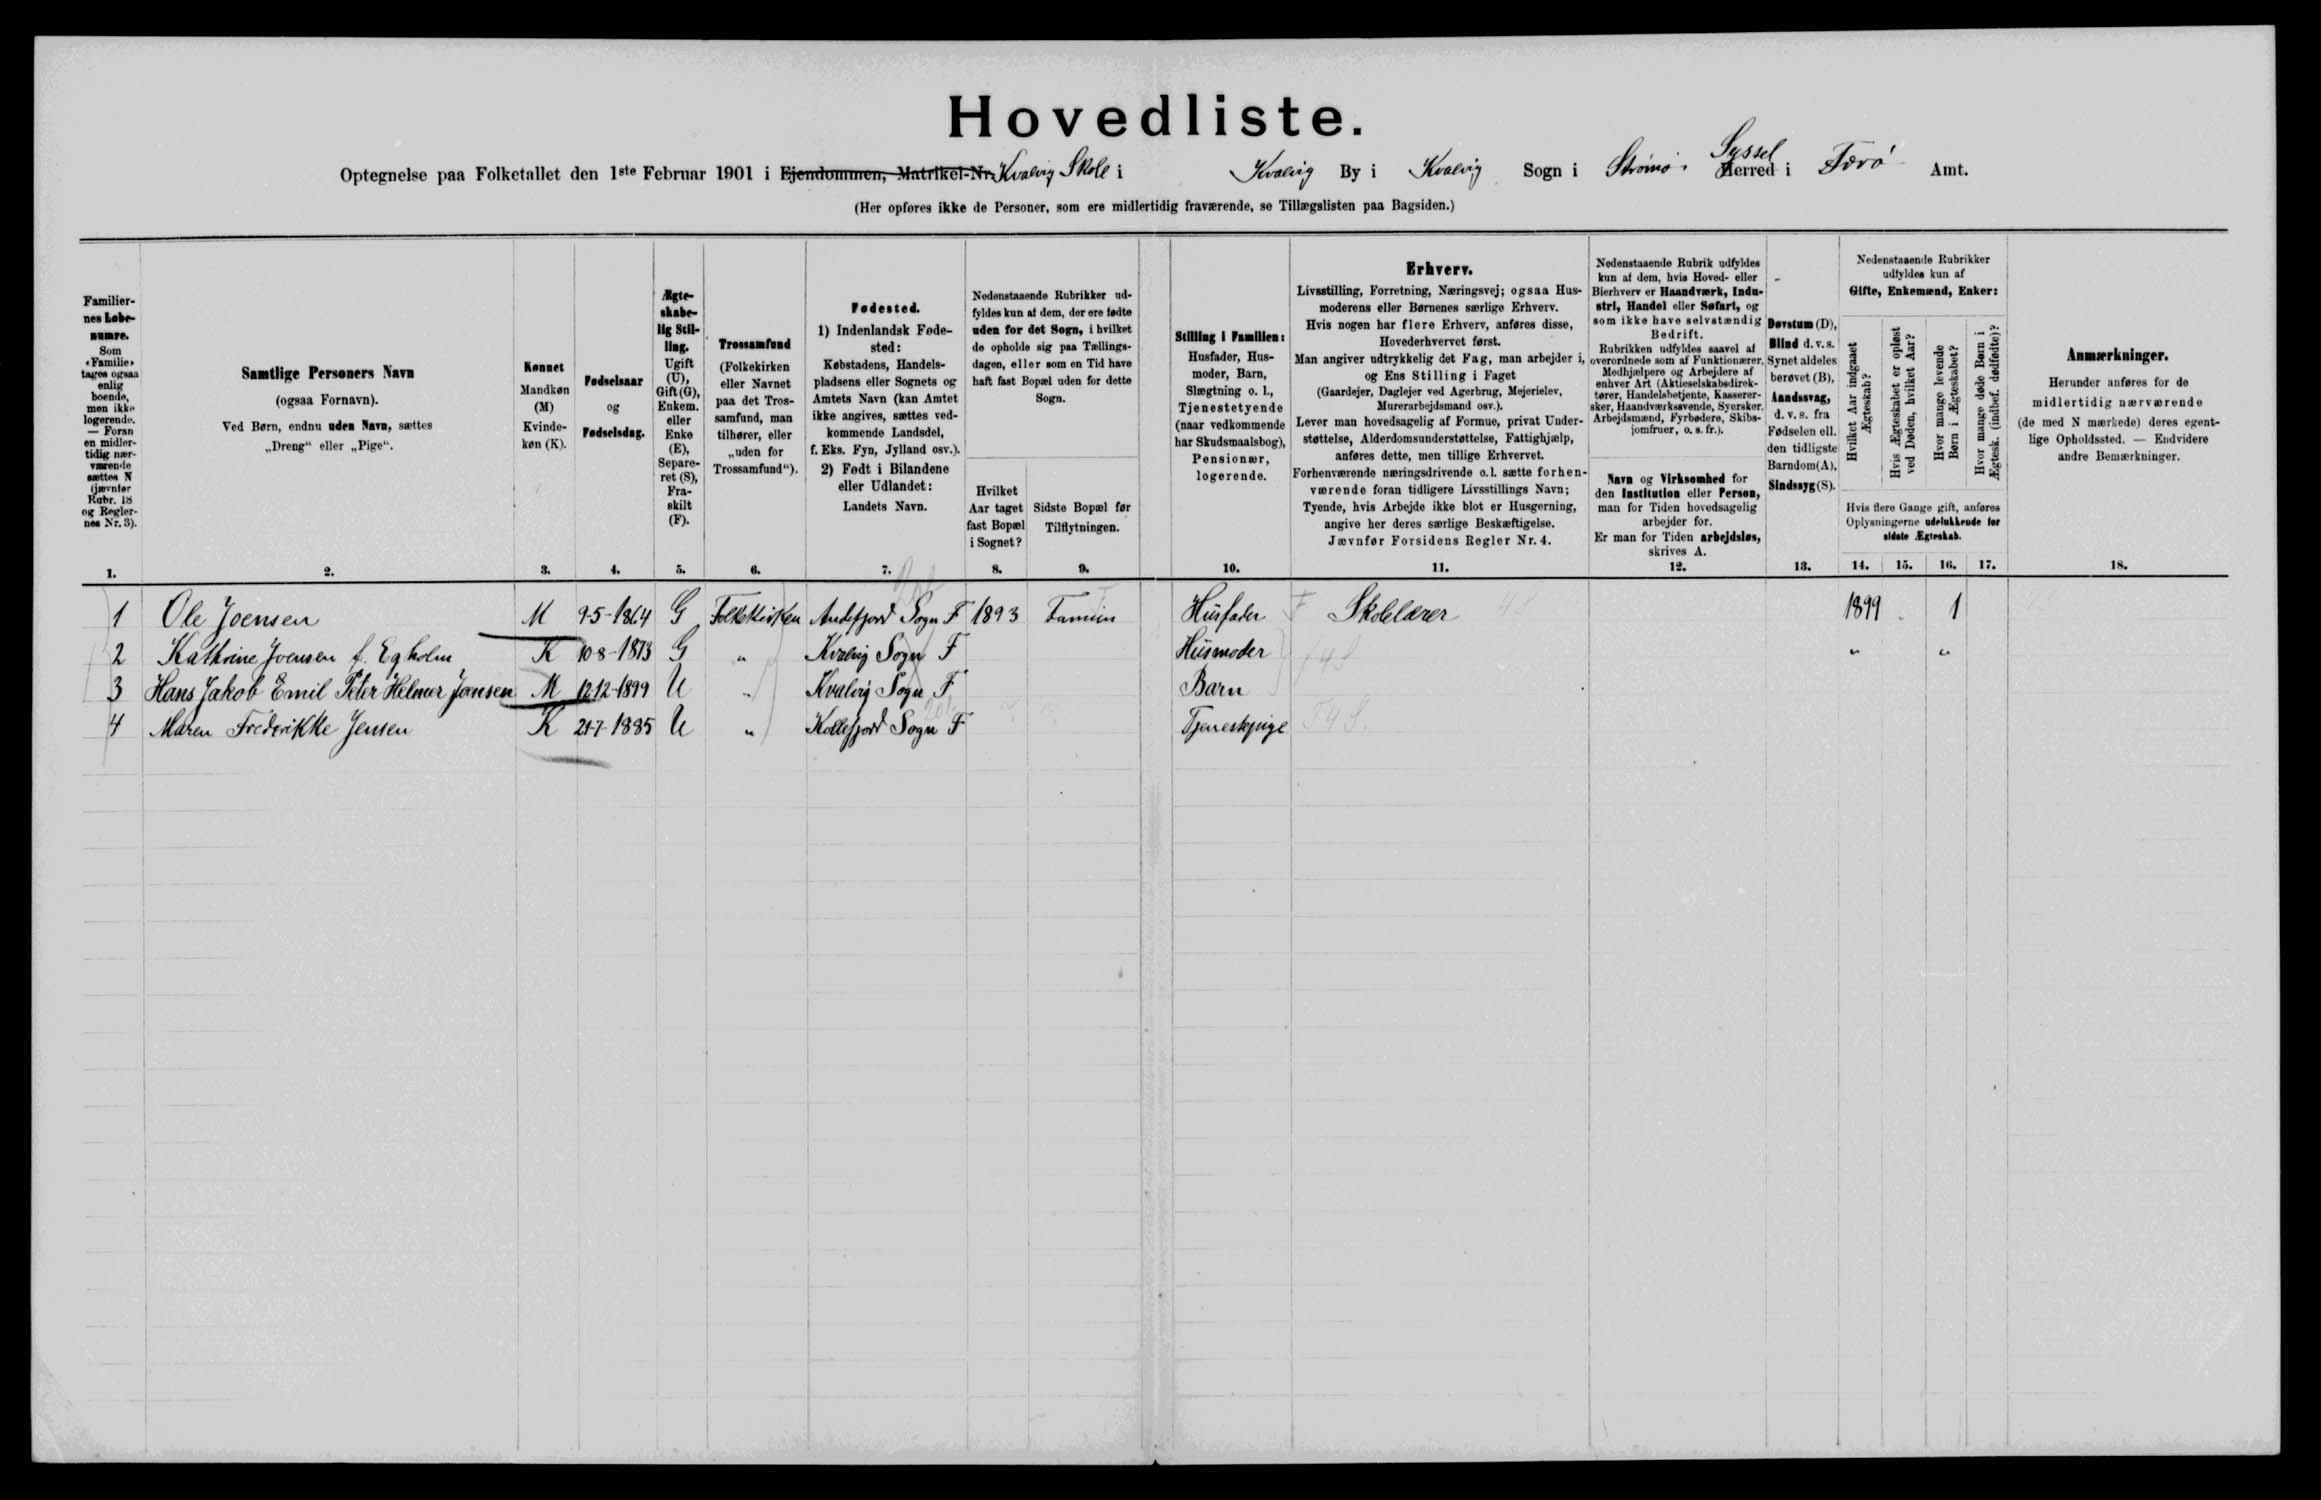 Hovedliste.
Optegnelse paa Folketallet den 1ste Februar 1901 i Ejendommen, Matrikel-Nr. Kvalvig Skole i Kvalvig By i Kvalvig Sogn i Strømø Herred Syssel i Færø Amt.
(Her opføres ikke de Personer, som ere midlertidig fraværende, se Tillægslisten paa Bagsiden.)
Familier-
nes Løbe-
numre.
Som
«Familie»
tages ogsaa
enlig
boende,
men ikke
logerende.
— Foran
en midler-
tidig nær-
værende
sættes N
(jævnfør
Rubr. 18
og Regler-
nes Nr. 3).
1.
Samtlige Personers Navn
(ogsaa Fornavn).
Ved Børn, endnu uden Navn, sættes
„Dreng“ eller „Pige“.
2.
Kønnet
Mandkøn
(M)
Kvinde-
køn (K).
3.
Fødselsaar
og
Fødselsdag.
4.
Ægte-
skabe-
lig Stil-
ling.
Ugift
(U),
Gift (G),
Enkem.
eller
Enke
(E),
Separe-
ret (S),
Fra-
skilt
(F).
5.
Trossamfund
(Folkekirken
eller Navnet
paa det Tros-
samfund, man
tilhører, eller
„uden for
Trossamfund“).
6.
Fødested.
1) IndenlandskFøde-
sted:
Købstadens, Handels-
pladsens eller Sognets og
Amtets Navn (kan Amtet
ikke angives, sættes ved-
kommende Landsdel,
f. Eks. Fyn, Jylland osv.).
2) Født i Bilandene
eller Udlandet:
Landets Navn.
7.
Nedenstaaende Rubrikker ud-
fyldes kun af dem, der ere fødte
uden for det Sogn, i hvilket
de opholde sig paa Tællings-
dagen, eller som en Tid have
haft fast Bopæl uden for dette
Sogn.
Hvilket
Aar taget
fast Bopæl
i Sognet?
8.
Sidste Bopæl før
Tilflytningen.
9.
Stilling i Familien:
Husfader, Hus-
moder, Barn,
Slægtning o. l.,
Tjenestetyende
(naar vedkommende
har Skudsmaalsbog),
Pensionær,
logerende.
10.
Erhverv.
Livsstilling, Forretning, Næringsvej; ogsaa Hus-
moderens eller Børnenes særlige Erhverv.
Hvis nogen har flere Erhverv, anføres disse,
Hovederhvervet først.
Man angiver udtrykkelig det Fag, man arbejder i,
og Ens Stilling i Faget
(Gaardejer, Daglejer ved Agerbrug, Mejerielev,
Murerarbejdsmand osv.).
Lever man hovedsagelig af Formue, privat Under-
støttelse, Alderdomsunderstøttelse, Fattighjælp,
anføres dette, men tillige Erhvervet.
Forhenværende næringsdrivende o.l. sætte forhen-
værende foran tidligere Livsstillings Navn;
Tyende, hvis Arbejde ikke blot er Husgerning,
angive her deres særlige Beskæftigelse.
Jævnfør Forsidens Regler Nr. 4.
11.
Nedenstaaende Rubrik udfyldes
kun af dem, hvis Hoved- eller
Bierhverv er Haandværk, Indu-
stri, Handel eller Søfart, og
som ikke have selvstændig
Bedrift.
Rubrikken udfyldes saavel af
overordnede som af Funktionærer,
Medhjælpere og Arbejdere af
enhver Art (Aktieselskabsdirek-
tører, Handelsbetjente, Kasserer-
sker, Haandværkssvende, Syersker,
Arbejdsmænd, Fyrbødere, Skibs-
jomfruer, o. s. fr.).
Navn og Virksomhed for
den Institution eller Person,
man for Tiden hovedsagelig
arbejder for.
Er man for Tiden arbejdsløs,
skrives A.
12.
Døvstum (D),
Blind d. v. s.
Synet aldeles
berøvet (B),
Aandssvag,
d. v. s. fra
Fødselen ell.
den tidligste
Barndom (A),
Sindssyg (S).
13.
Nedenstaaende Rubrikker
udfyldes kun af
Gifte, Enkemænd, Enker:
Hvilket Aar indgaaet
Ægteskab?
Hvis Ægteskabet er opløst
ved Døden, hvilket Aar?
Hvor mange levende
Børn i Ægteskabet?
Hvor mange døde Børn i
Ægtesk. (indbef. dødfødte)?
Hvis flere Gange gift, anføres
Oplysningerne udelukkende for
sidste Ægteskab.
14. 15. 16. 17.
Anmærkninger.
Herunder anføres for de
midlertidig nærværende
(de med N mærkede) deres egent-
lige Opholdssted. — Endvidere
andre Bemærkninger.
18.
1 Ole Joensen M 9-5-1864 G Folkekirken Andefjord Sogn F 1893 Famien Husfader F Skolelærer 1899 1
2 Kathrine Joensen f. Egholm K 10-8-1873 G „ Kvalvig Sogn F Husmoder „ „
3 Hans Jakob Emil Peter Helmer Joensen M 12-12-1899 U „ Kvalvig Sogn F Barn
4 Maren Frederikke Jensen K 21-7-1885 U „ Kollefjord Sogn F Tjenestepige